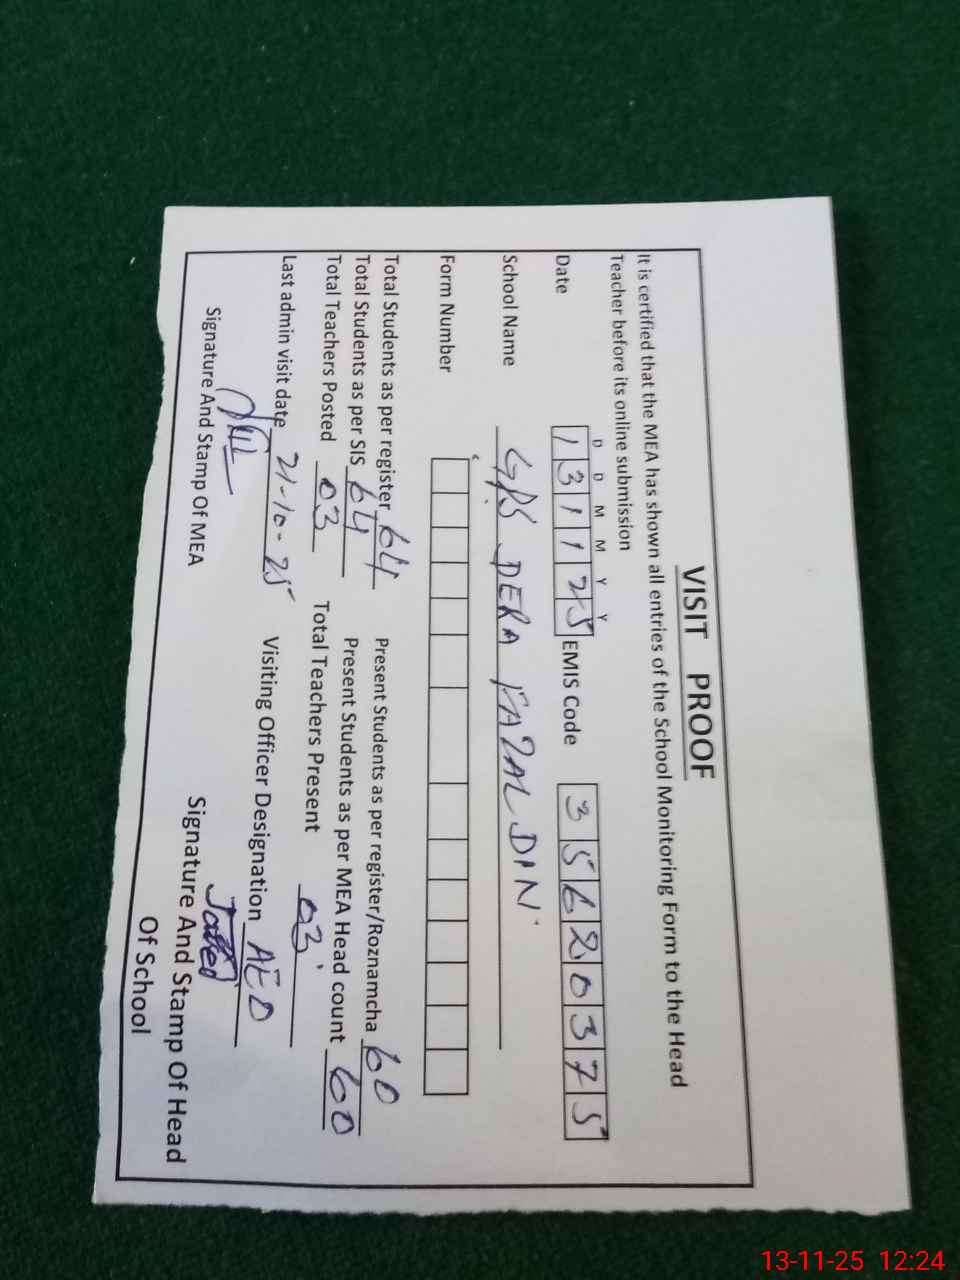 VISIT PROOF
It is certified that the MEA has shown all entries of the School Monitoring Form to the Head
Teacher before its online submission
D D M M Y Y
Date 1 3 1 1 2 5 EMIS Code 3 5 6 2 0 3 7 5
School Name GPS DERA FAZAL DIN
Form Number
Total Students as per register 64 Present Students as per register/Roznamcha 60
Total Students as per SIS 64 Present Students as per MEA Head count 60
Total Teachers Posted 03 Total Teachers Present 03
Last admin visit date 21-10-25 Visiting Officer Designation AEO
Signature And Stamp Of MEA Signature And Stamp Of Head
Of School
13-11-25 12:24